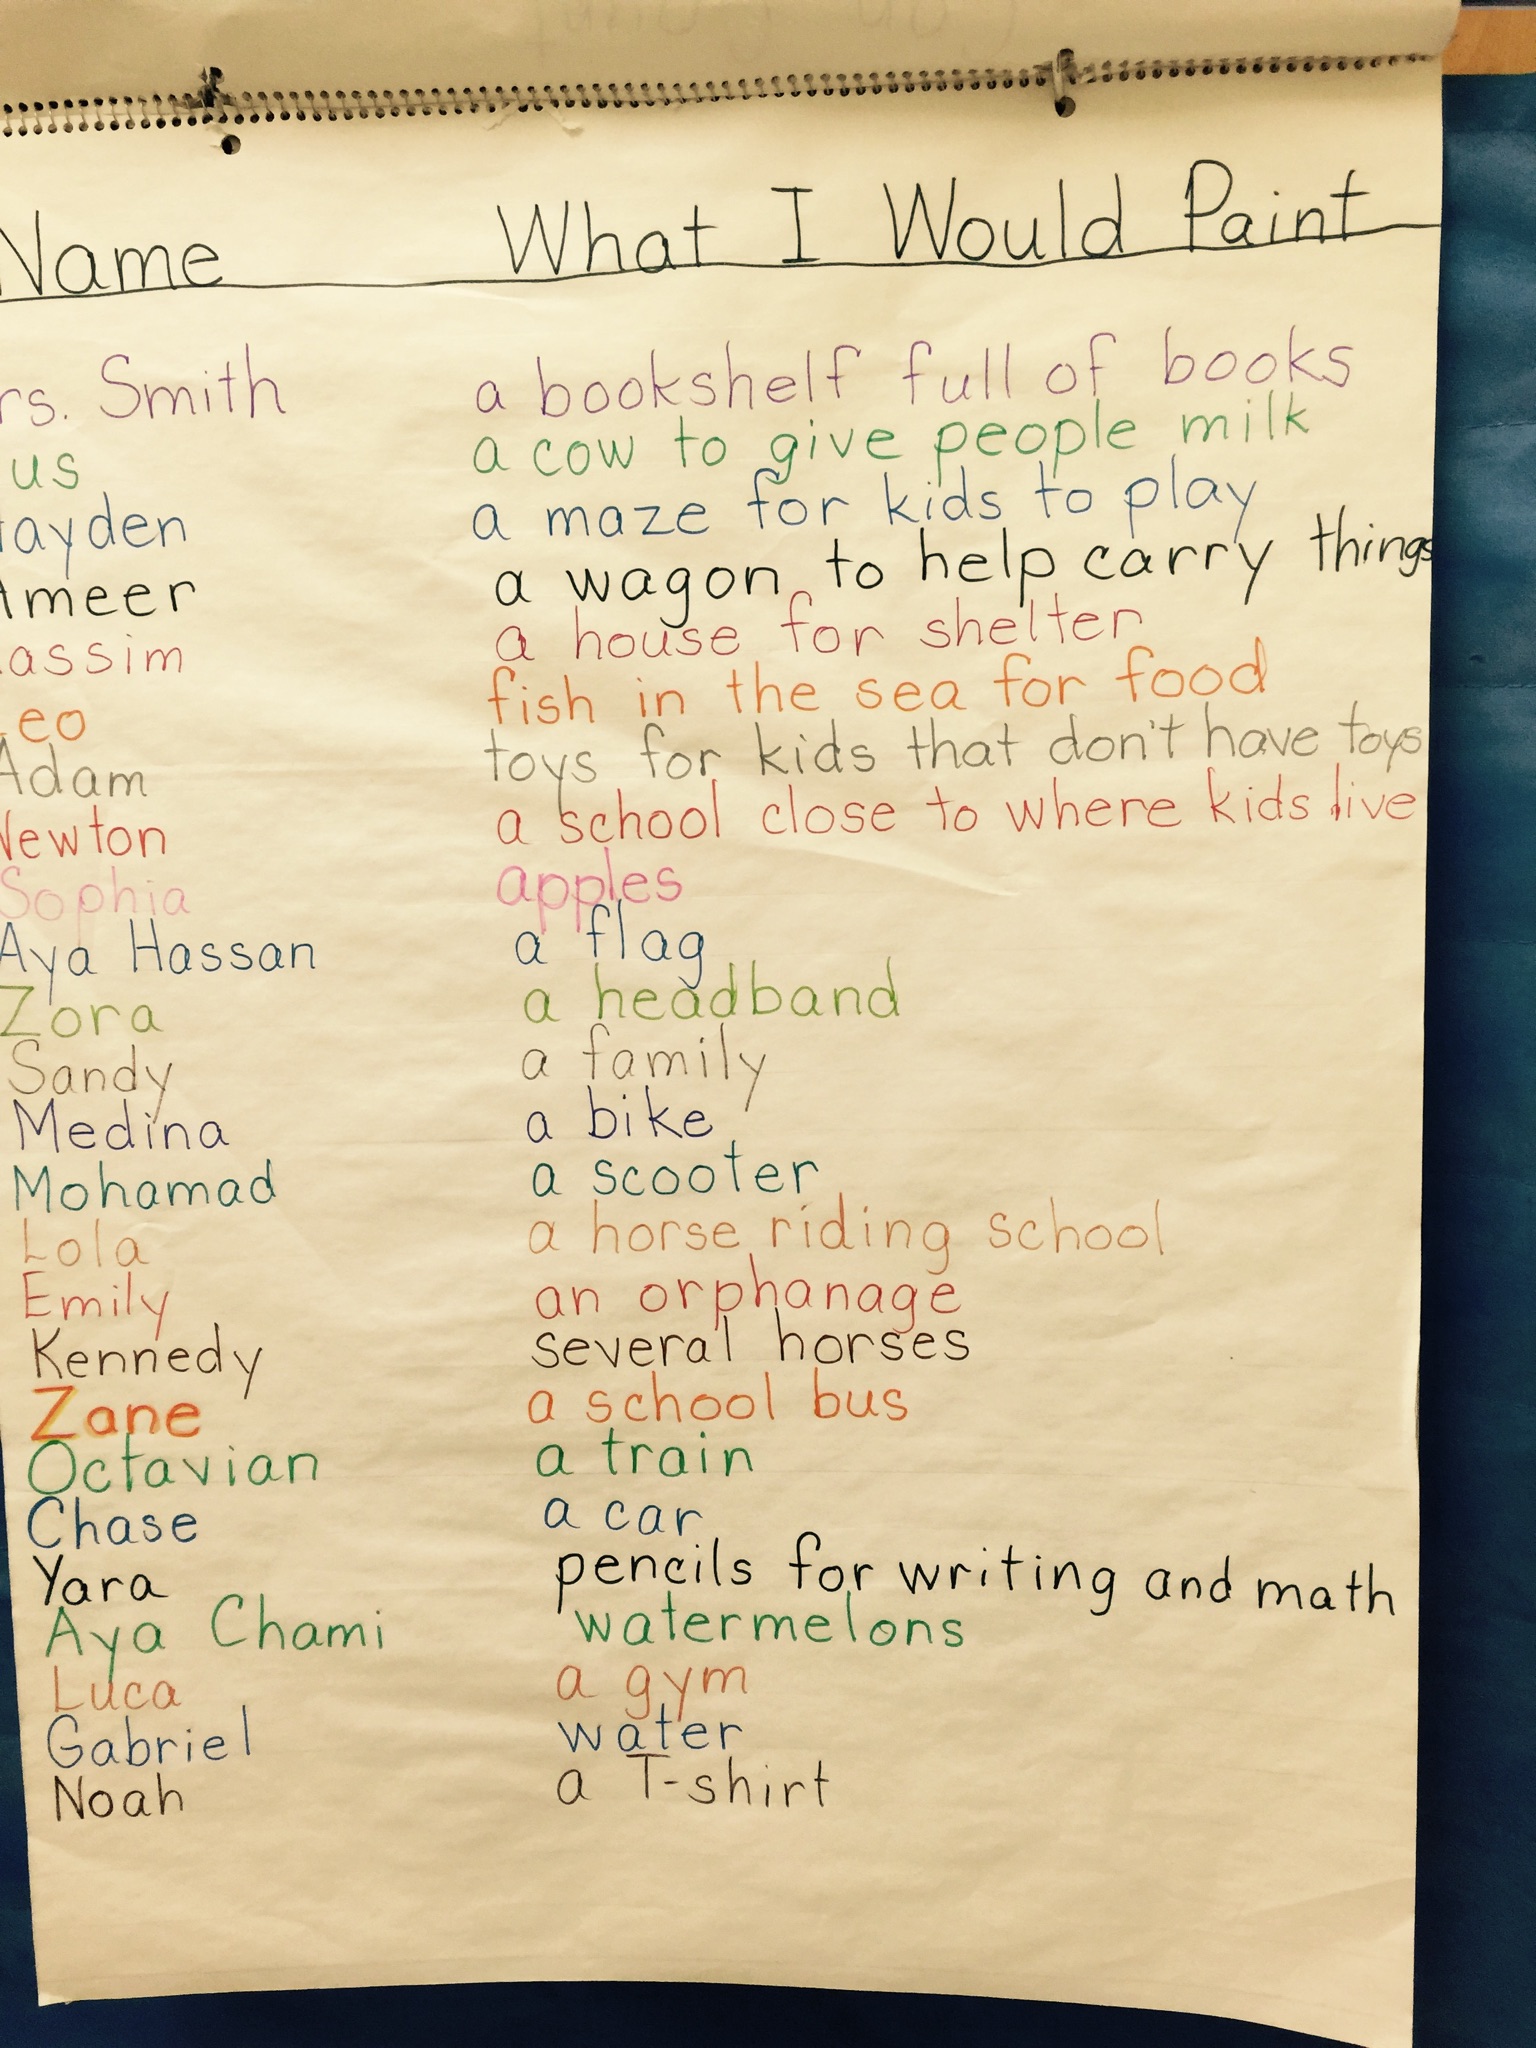 Name What I Would Paint
rs. Smith a bookshelf full of books
us a cow to give people milk
ayden a maze for kids to play
Ameer a wagon to help carry things
assim a house for shelter
Leo fish in the sea for food
Adam toys for kids that don't have toys
Newton a school close to where kids live
Sophia apples
Aya Hassan a flag
Zora a headband
Sandy a family
Medina a bike
Mohamad a scooter
Lola a horse riding school
Emily an orphanage
Kennedy several horses
Zane a school bus
Octavian a train
Chase a car
Yara pencils for writing and math
Aya Chami watermelons
Luca a gym
Gabriel water
Noah a T-shirt